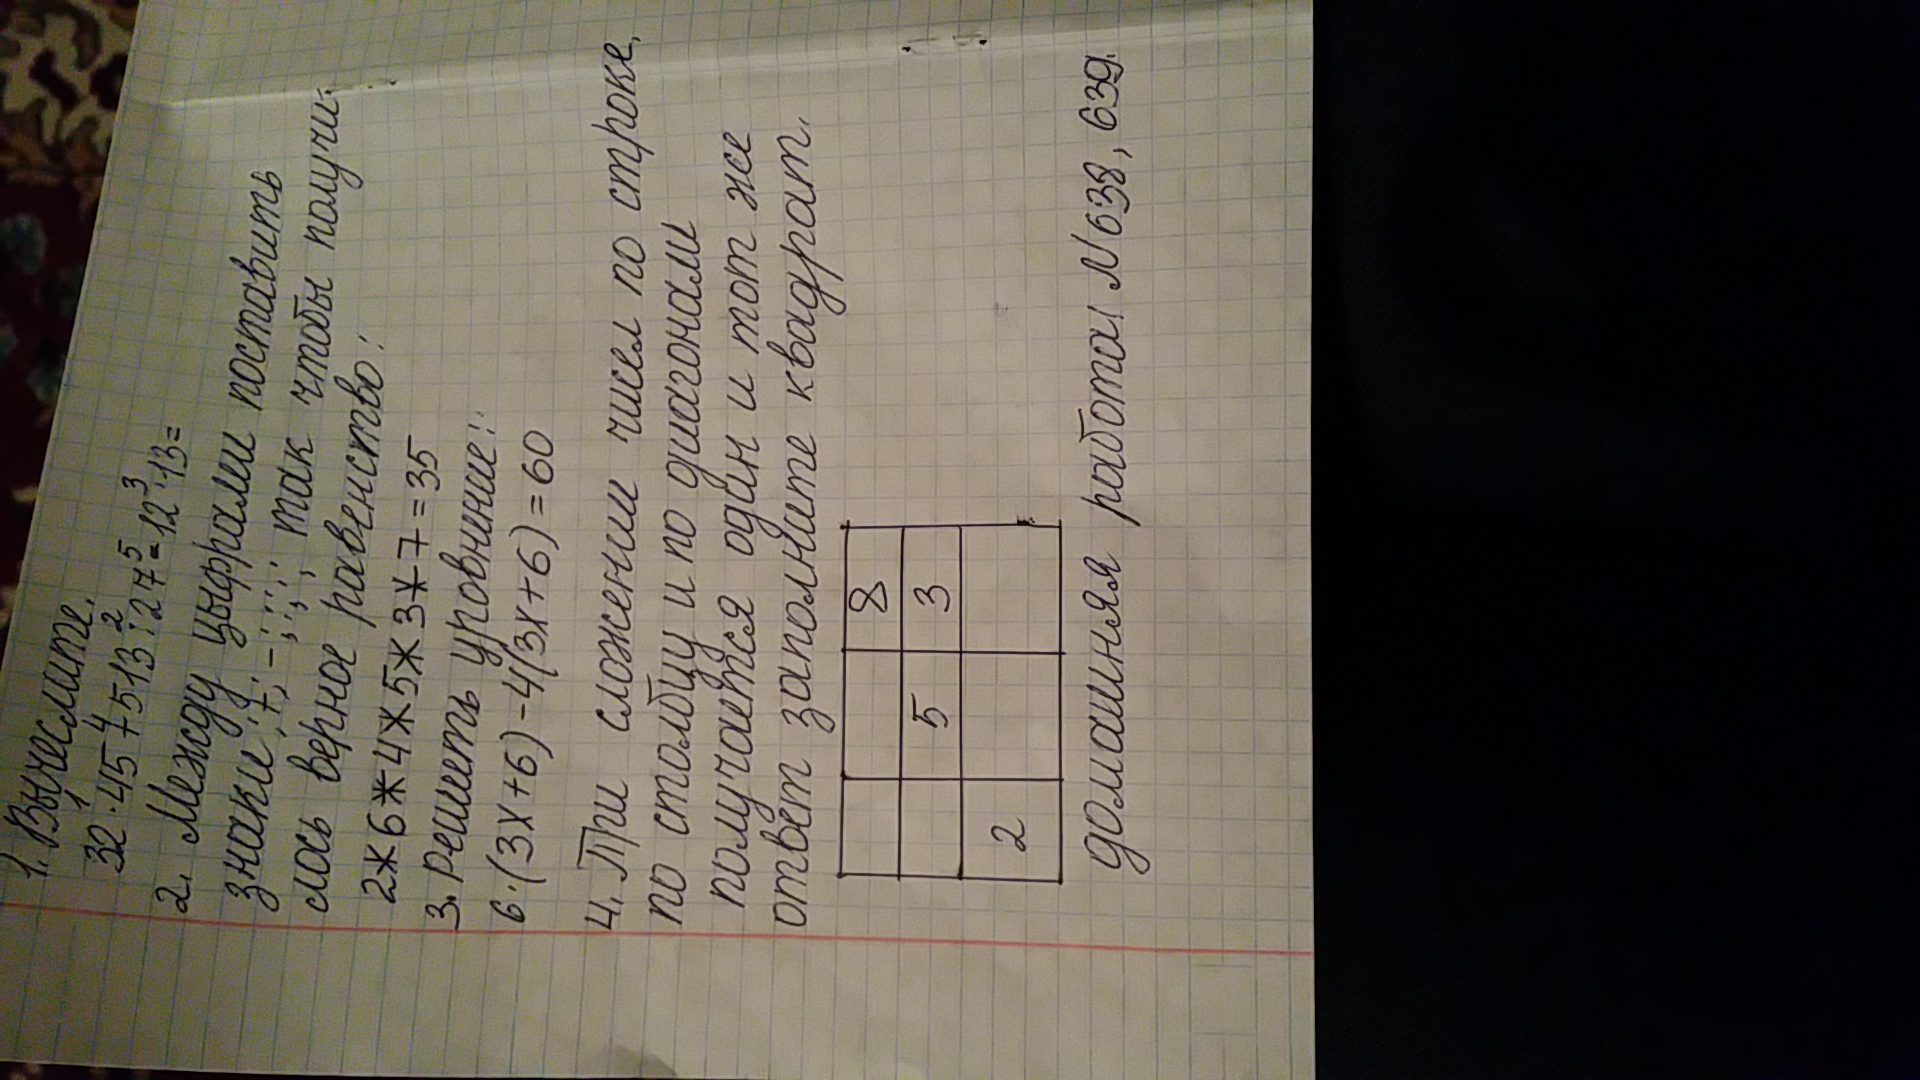 1. Вычеслите.
1 4 2 5 3
32·45+513:27-12·13=
2. Между цыфрами поставить
знаки: +, -, ":", "·", так чтобы получи-
лось верное равенство:
2*6*4*5*3*7=35
3. Решить уровнине:
6·(3x+6)-4(3x+6)=60
4. При сложении чисел по строке,
по столбцу и по диагонали
получается один и тот же
ответ заполните квадрат.
8
5 3
2
домашняя работа: №638, 639.